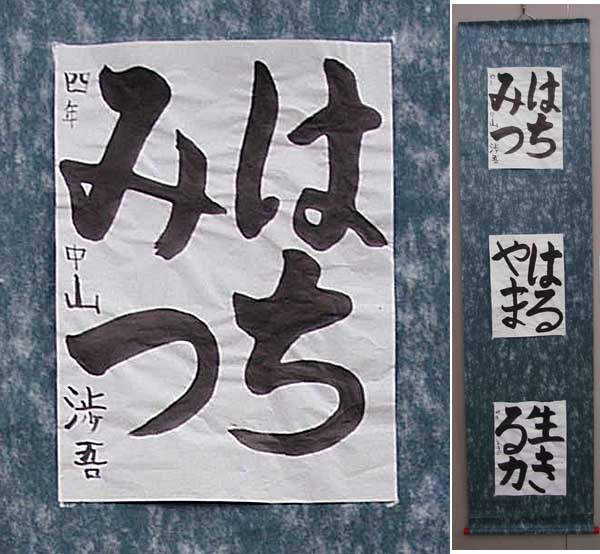 はち
みつ
四年 中山 渉吾
はち
みつ
中山 渉吾
はる
やま
生き
る力